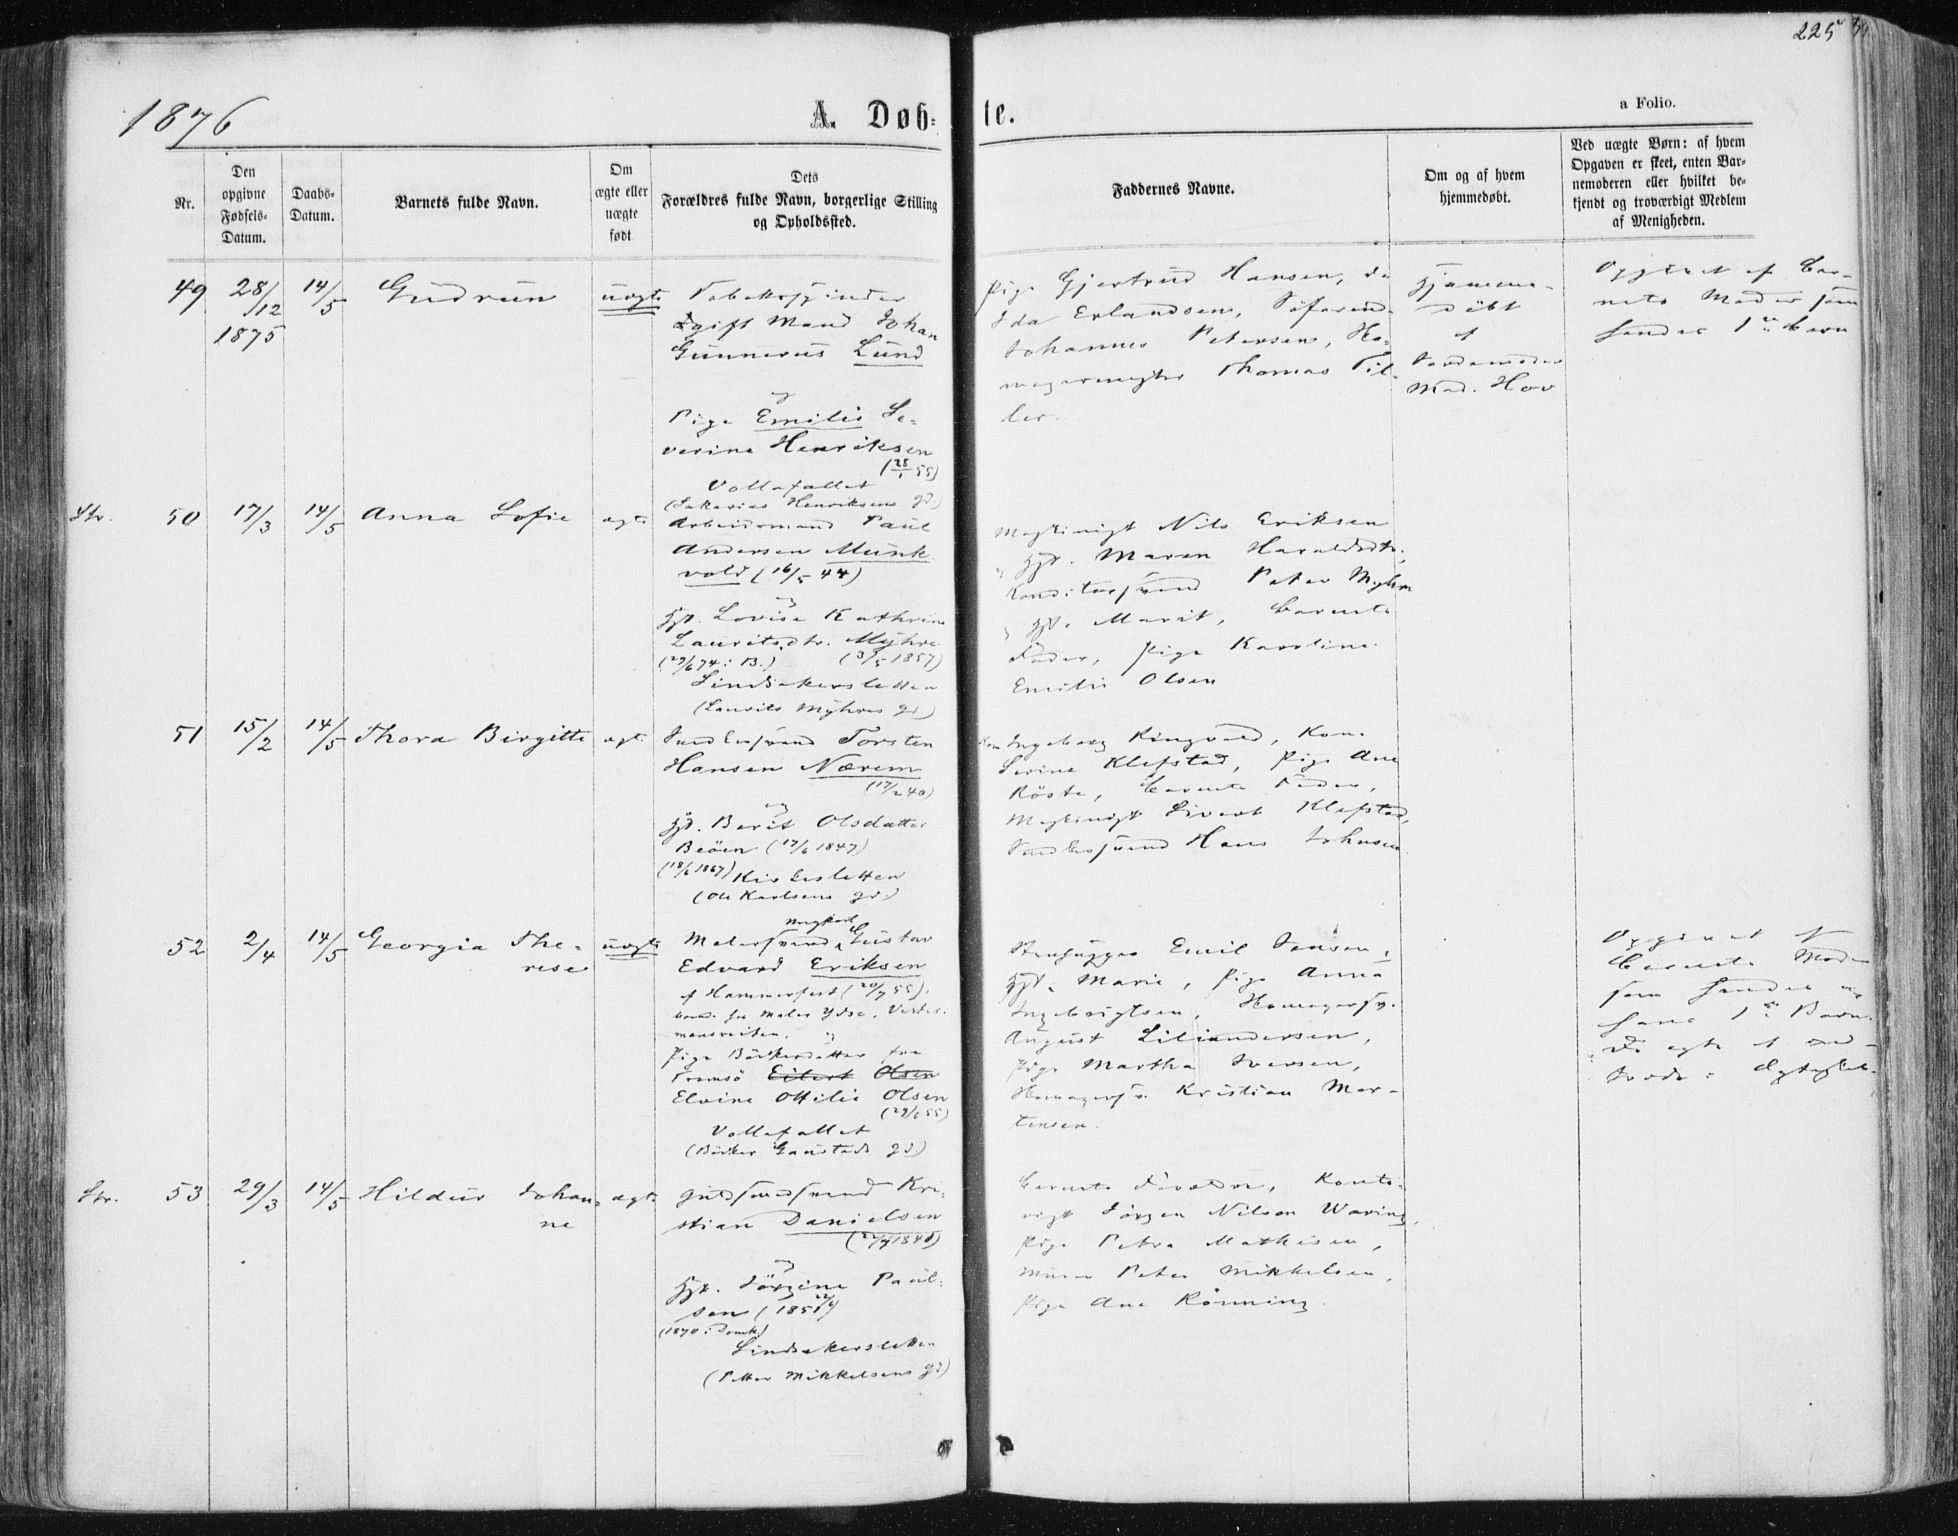 225
1876
A. Døb-
te.
a Folio.
Nr.
Den
opgivne
Fødsels-
Datum.
Daabs-
Datum.
Barnets fulde Navn.
Om
ægte eller
uægte
født.
Dets
Forældres fulde Navn, borgerlige Stilling
og Opholdssted.
Faddernes Navne.
Om og af hvem
hjemmedøbt.
Ved uægte Børn: af hvem
Opgaven er skeet, enten Bar-
nemoderen eller hvilket be-
kjendt og troværdigt Medlem
af Menigheden.
49
28/12
1875
14/5
Gudrun
uægte
Tobaksspinder
gift Mand Johan
Gunnerus Lund
og
Pige Emilie Se-
verine Henriksen
(28/1 55)
Vollafallet
(Sakarias Henriksens gd.)
Pige Gjertrud Hansen, do
Ida Erlandsen, Søfarend.
Johannes Petersen, Ho-
magersvend Thomas Til-
ler.
Hjemme-
døbt
af
Jordemoder
Mad. Hov
Opgivet af Bar-
nets Moder som
hendes 1ste Barn
Str.
50
17/3
14/5
Anna Sofie
ægte
Arbeidsmand Paul
Andersen Munk-
vold (16/5 44)
og
Hst. Lovise Kathrine
Lauritsdtr. Myhre
(29/6 74 i B.) (3/5 1857)
Lindsakersletten
(Laurits Myhres gd.)
Nils Eriksen
Hst. Maren Haraldsdtr.
Konditorsvend Peter Myhre
Hst. Marit, Barnets
Fader, Pige Karoline
Emilie Olsen
51
15/2
14/5
Thora Birgitte
ægte
Snedkersvend Torsten
Hansen Nærem
(17/2 40)
og
Hst. Berit Olsdatter
Beöen (17/6 1847)
(18/6 1867) Kirkesletten
(Ole Karlsens gd.)
Kon Ingeborg Ringvold, Kon.
Serine Klefstad, Pige Ane
Röste, Barnets Fader,
Sivert Klefstad,
Snedkersvend Hans Johnsen
52
2/4
14/5
Georgia The-
rese
uægte
Ungkarl
Malersvend Gustav
Edvard Eriksen
af Hammerfest (20/7 55),
Maler Ydse, Vester-
mansveiten, og
Pige Bödkerdatter fra
Tromsö Eilert Olsen
Elvine Ottilie Olsen
(29/6 55)
Vollafallet
(Bödker Gaustads gd.)
Stenhugger Emil Jensen,
Hst. Marie, Pige Anna
Ingebrigtsen, Homagersv.
August Liliandersen,
Pige Martha Iversen,
Homagersv. Kristian Mor-
tensen.
Opgivet af
Barnets Moder
som hendes og
hans 1ste Barn.
Str.
53
29/3
14/5
Hildur Johan-
ne
ægte
Kri-
stian Danielsen
og
Hst. Jörgine Paul-
sen
(1870 i Domk.)
Lindsakersletten
(Petter Mikkelsens gd.)
Barnets Forældre, Kont-
Jörgen Nilsen Waring,
Pige Petra Mathisen,
Murer Peter Mikkelsen,
Pige Ane Rönning.